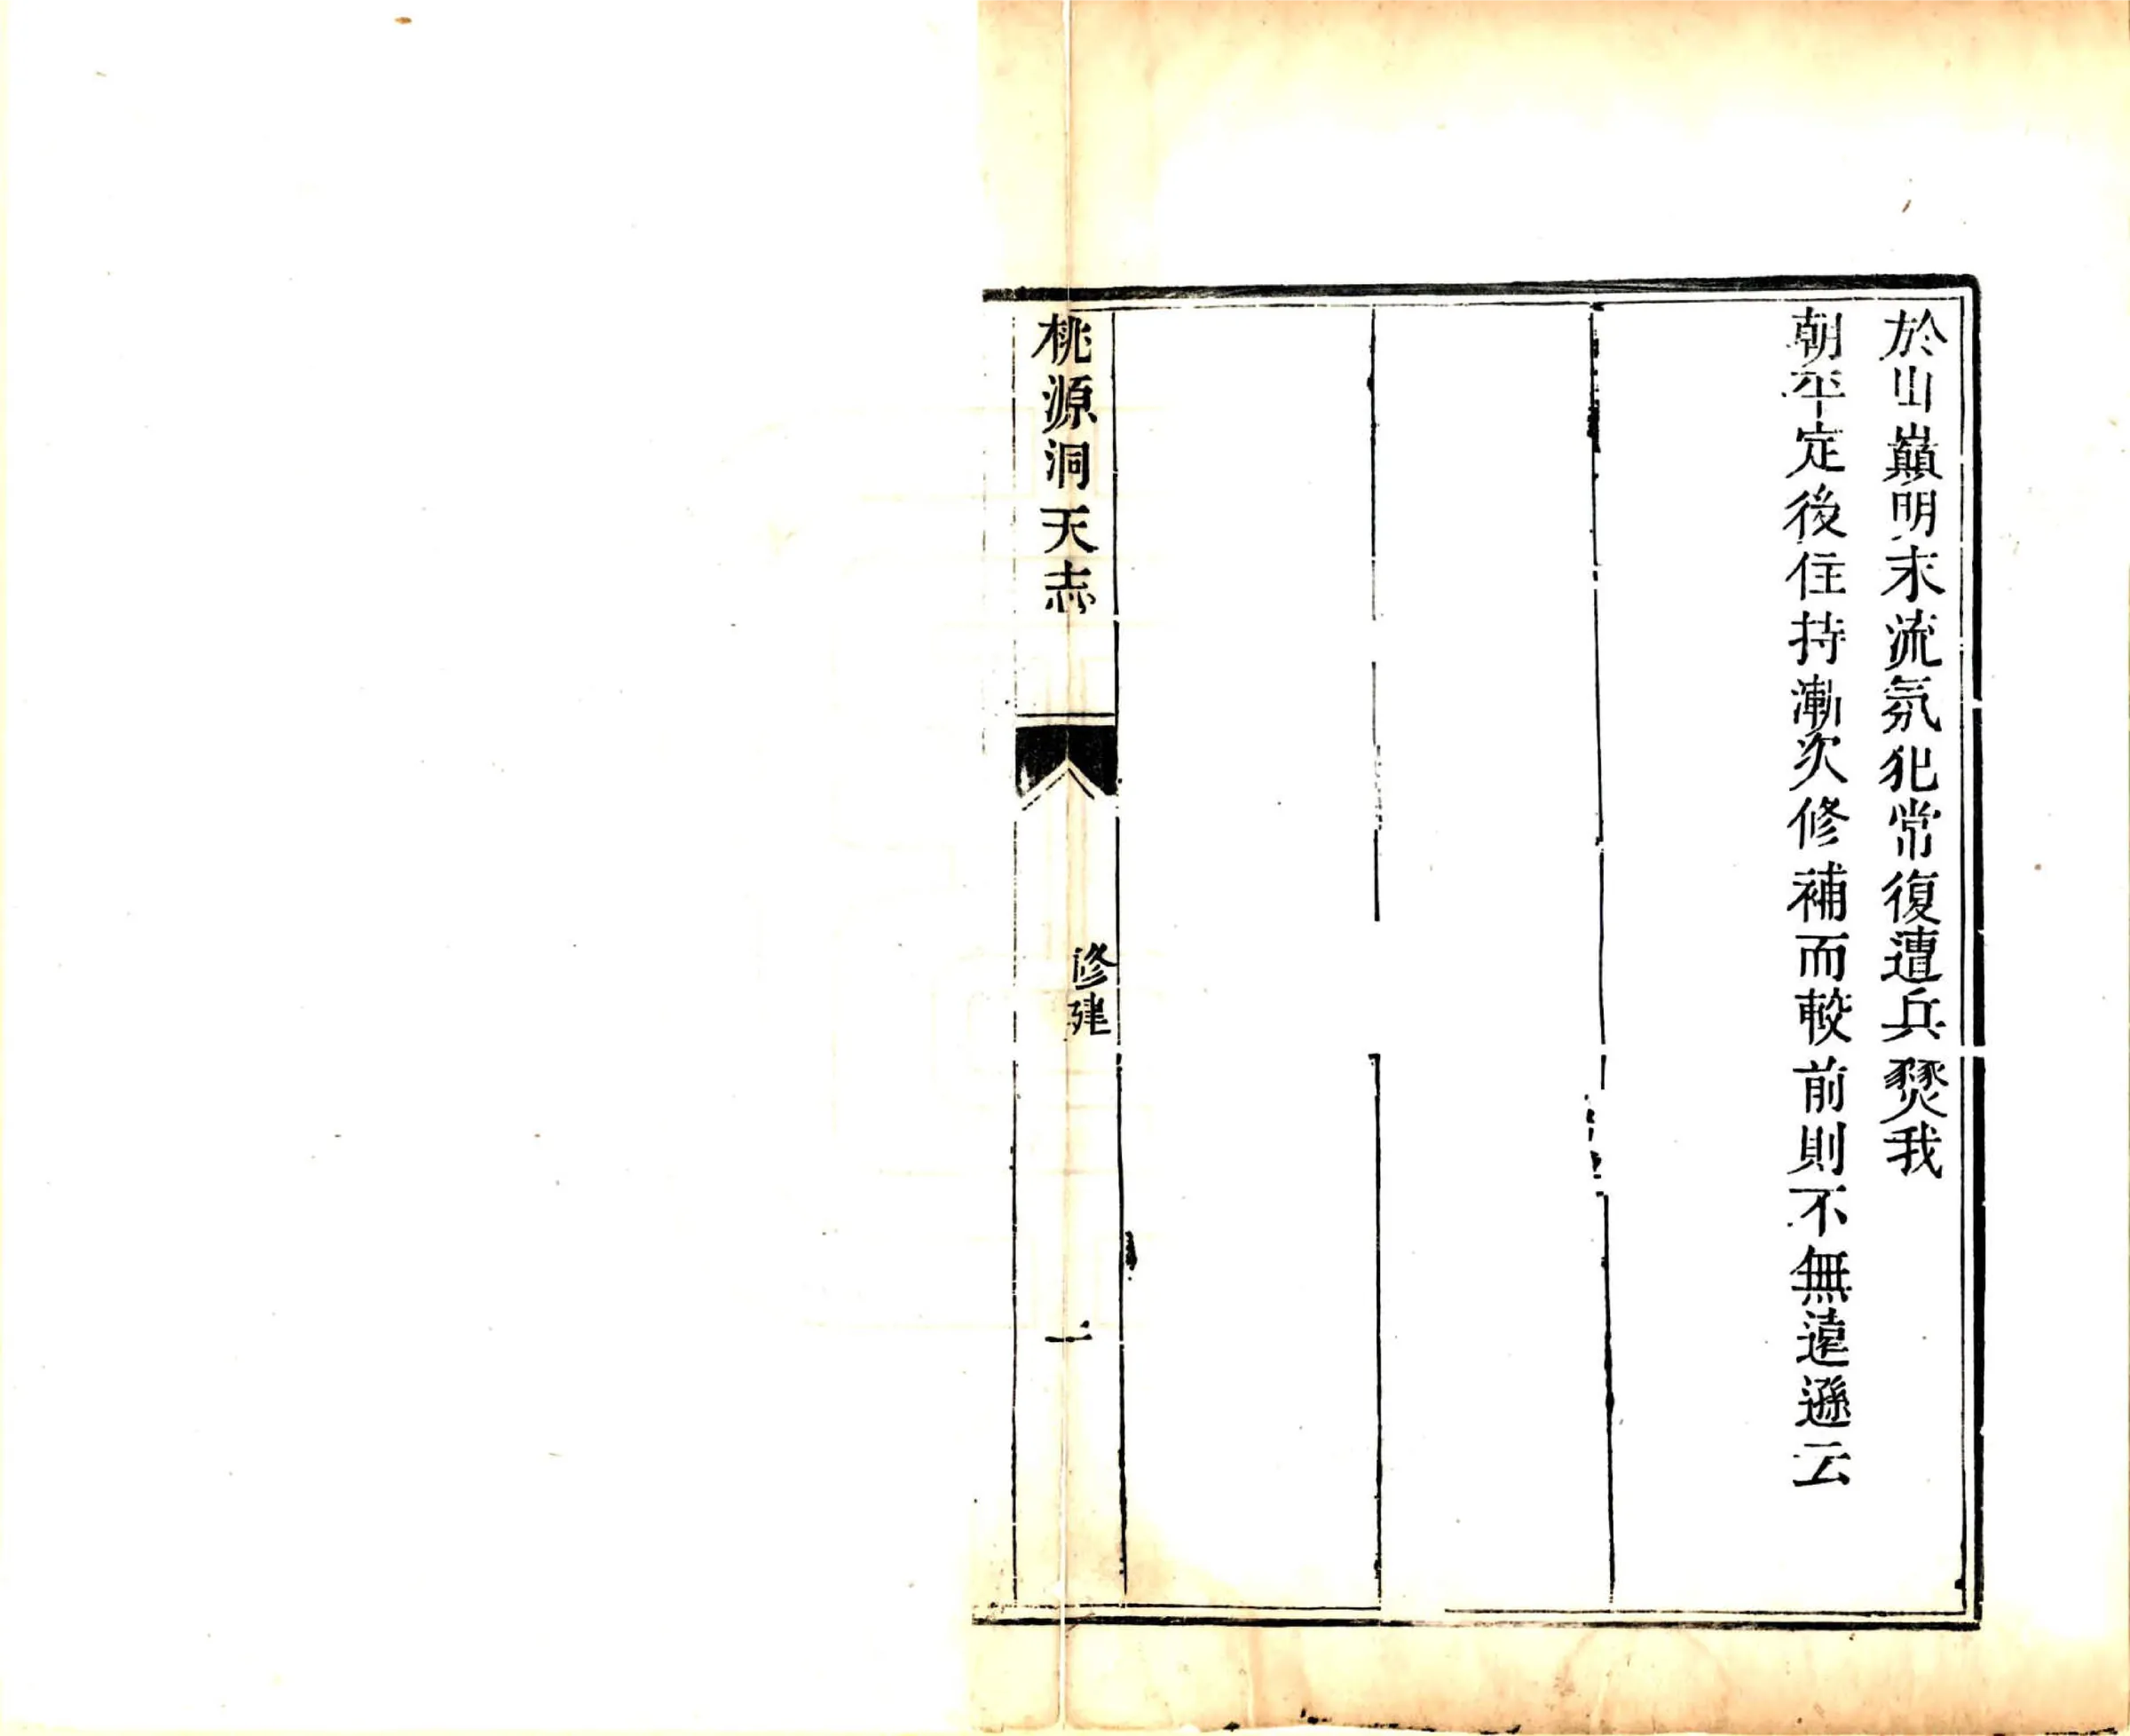 於山巔明末流氛犯常復遭兵燹我
朝平定後住持漸次修補而較前則不無遠遜云
桃源洞天志
修建
一